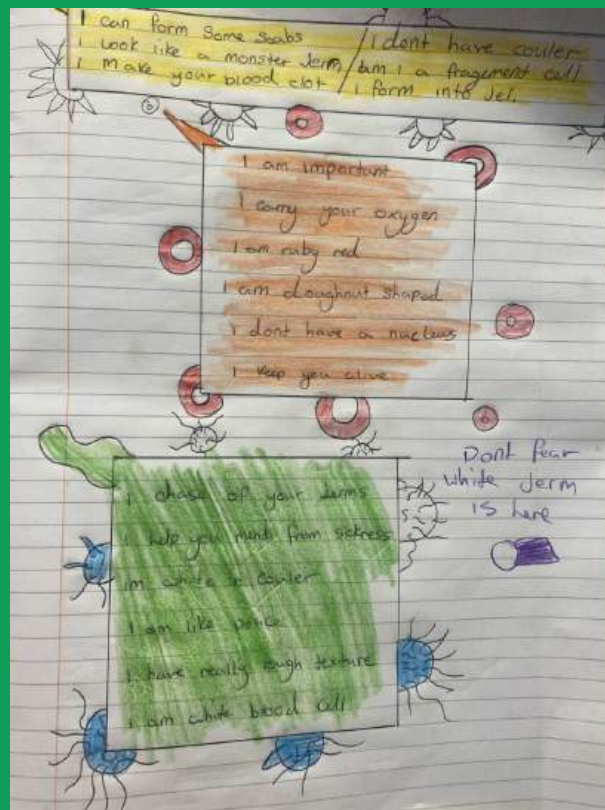 I can form some scabs
I look like a monster Jerm
I make your blood clot
I dont have couler
am I a fragement cell
I form into Jel.
I am important
I carry your oxygen
I am ruby red
I am doughnut shaped
I dont have a nucleus
I keep you alive
I chase of your Jerms
I help you mend from sickness
im white in couler
I am like police
I have really rough texture
I am white blood cell
Dont fear
white Jerm
is here